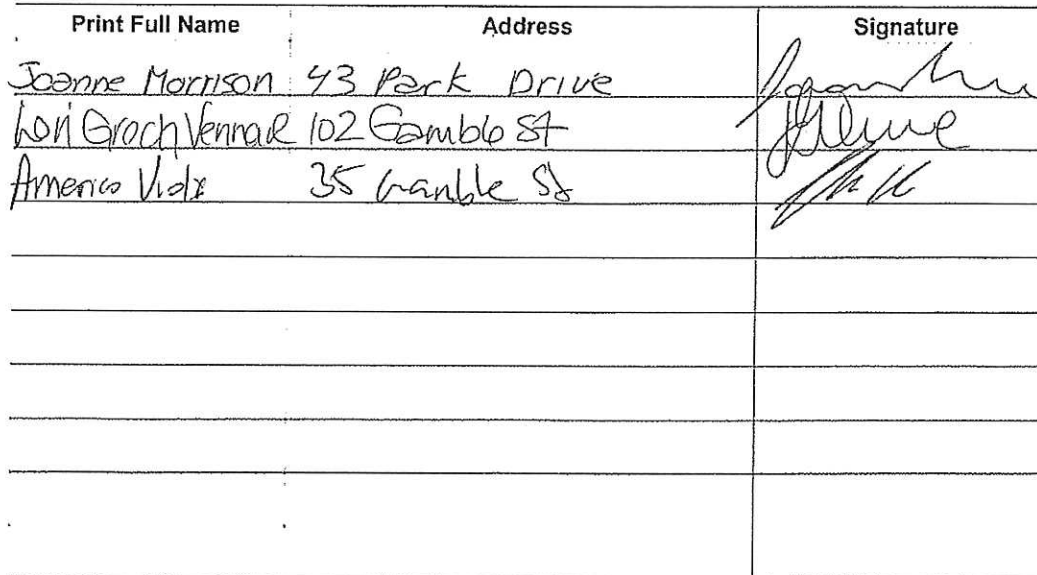 Print Full Name Address Signature
Joanne Morrison 43 Park Drive
Lori Groch Vennare 102 Gamble St
Americo Viola 35 Gamble St